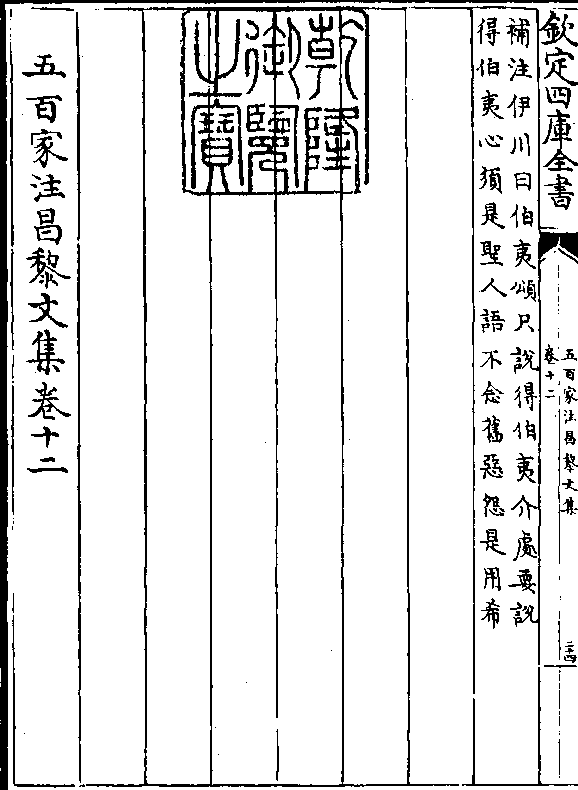 欽定四庫全書
五百家注昌黎文集
卷十二
二十四
補注伊川曰伯夷頌只說得伯夷介處要說
得伯夷心須是聖人語不念舊惡怨是用希
乾隆
御覽
之寶
五百家注昌黎文集卷十二